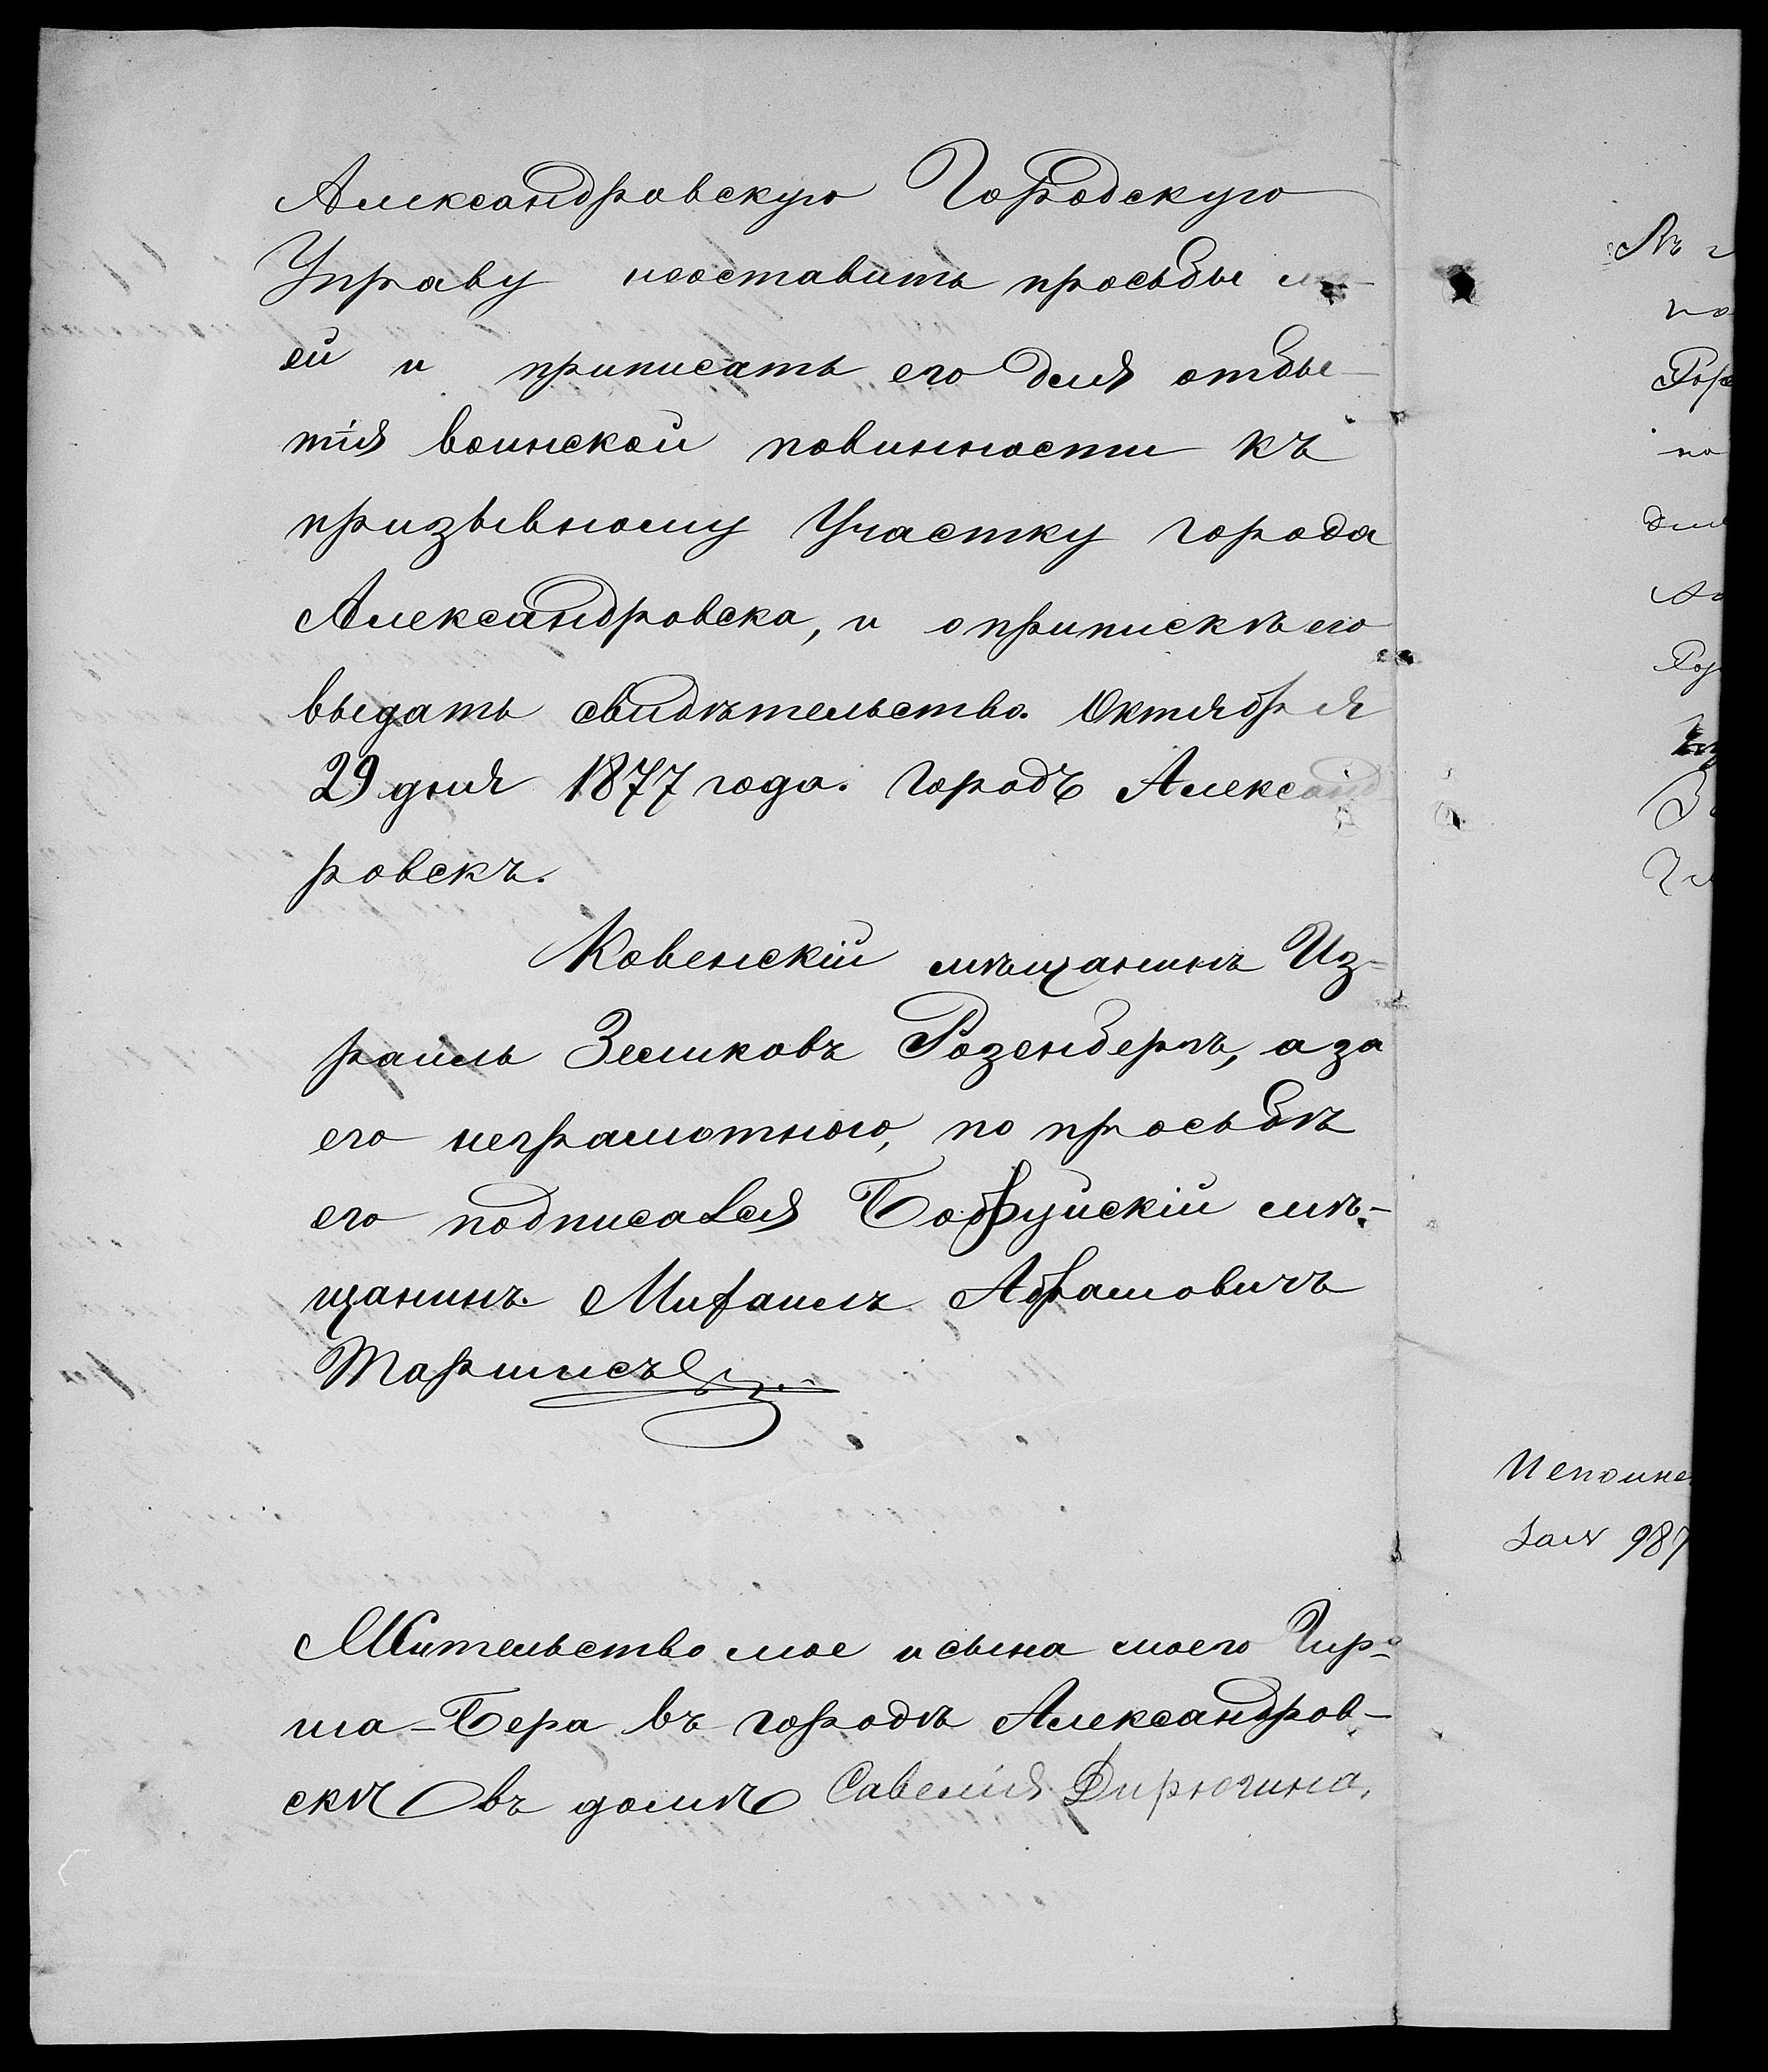 Александровскую Городскую
Управу неоставить просьбы мо-
ей и приписать его для отбы-
тія воинской повинности къ
призывному Участку города
Александровска, и о припискѣ его
выдать свидѣтельство. Октября
29 дня 1877 года. Городъ Александ-
ровскъ.
Ковенскій мѣщанинъ Из-
раиль Зеликовъ Розенбергъ, а за
его неграмотного, по просьбѣ
его подписался Бобруйскій мѣ-
щанинъ Михаилъ Абрамовичъ
Жительство мое и сына моего Гир-
ша-Бера въ городѣ Александров-
скѣ въ домѣ Савелія Дирюгина.
по
987